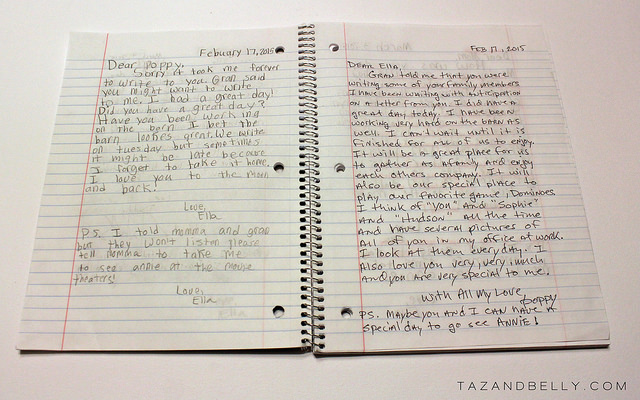 Febuary 17, 2015
Dear Poppy,
Sorry it took me forever
to write to you Gran said
you might want to write
to me. I had a great day!
Did you have a great day?
Have you been working
on the barn I bet the
barn lookes great. We write
on tuesday but sometimes
it might be late because
I forget to take it home.
I love you to the moon
and back!
Love,
Ella
P.S. I told momma and gran
but they won't listen please
tell momma to take me
to see annie at the movie
theaters!
Love,
Ella
FEB 17, 2015
Dear Ella,
Gran told me that you were
writing some of your family members
I have been waiting with anticipation
on a letter from you. I did have a
great day today. I have been
working very hard on the barn as
well. I can't wait until it is
finished for all of us to enjoy.
It will be a great place for us
to gather as a family and enjoy
each others company. It will
also be our special place to
play our favorite game, Dominoes.
I think of "you" and "Sophie"
and "Hudson" all the time
and have several pictures of
all of you in my office at work.
I look at them everyday. I
also love you very, very much
and you are very special to me.
With All My Love
Poppy
PS. Maybe you and I can have a
special day to go see ANNIE!
TAZANDBELLY.COM